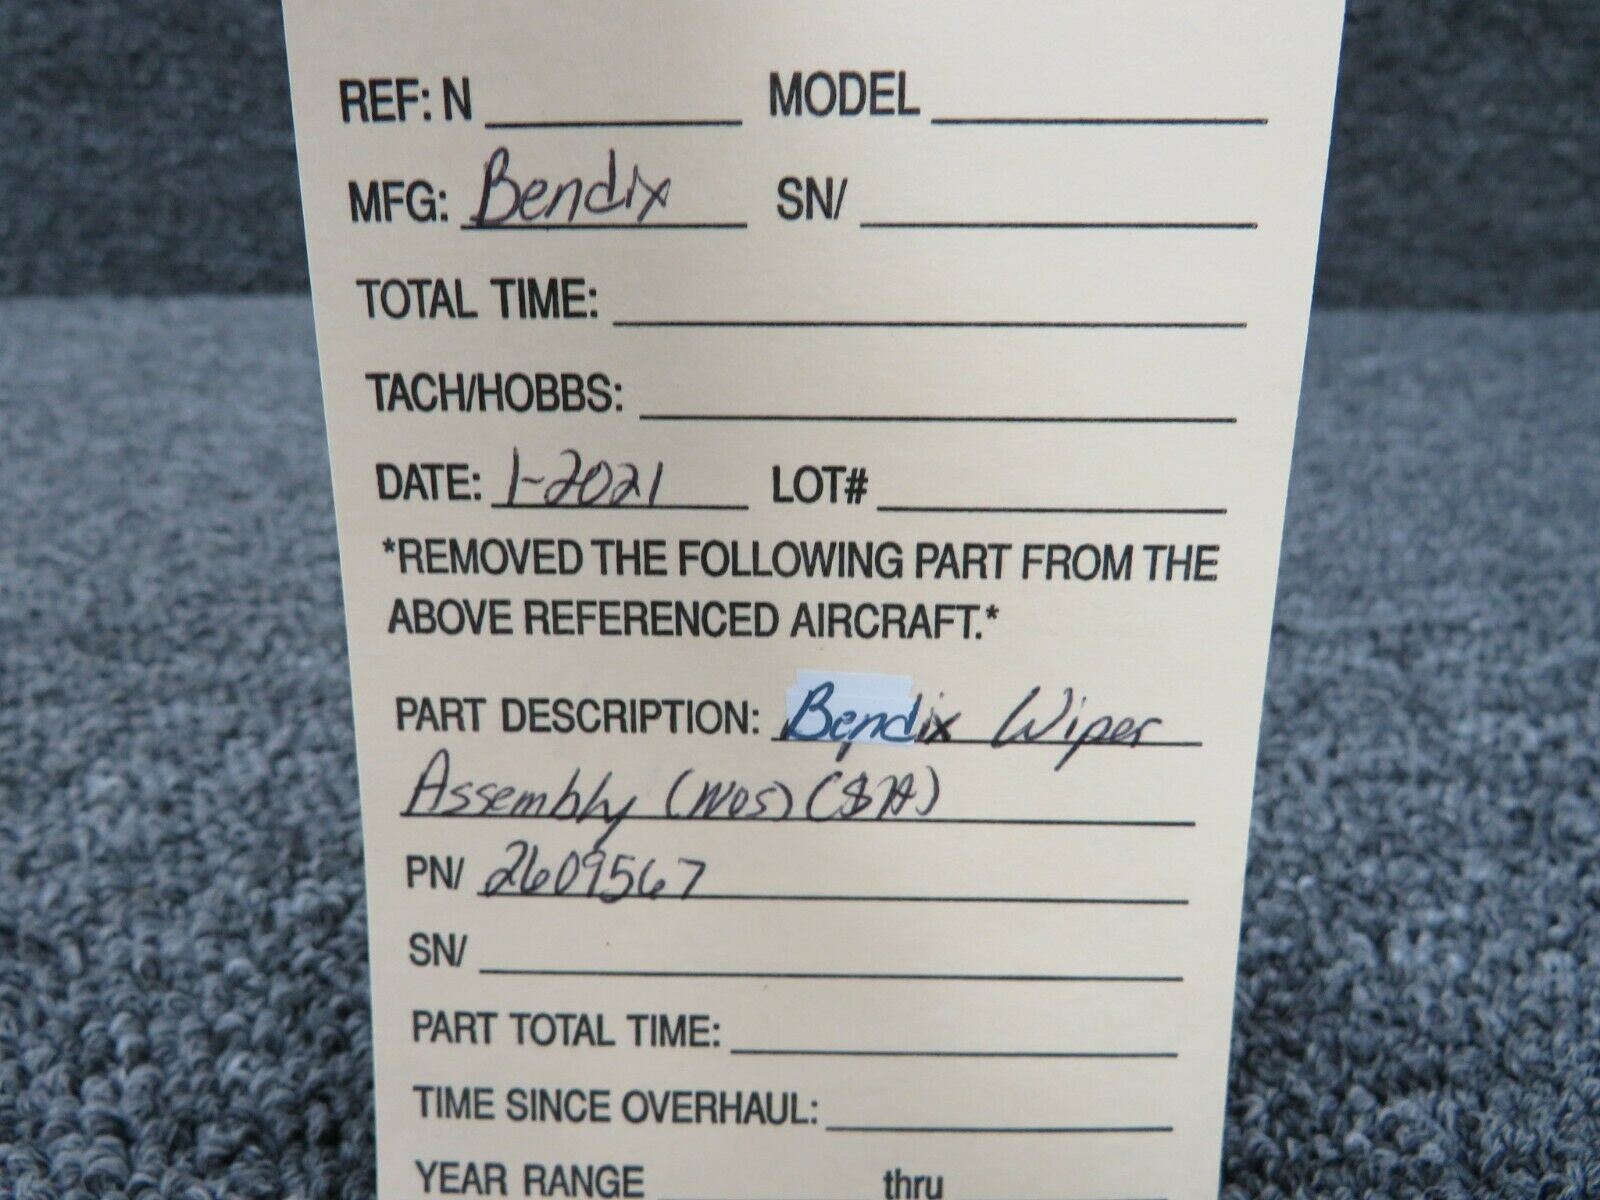 REF: N MODEL
MFG: Bendix SN/
TOTAL TIME:
TACH/HOBBS:
DATE: 1-2021 LOT#
*REMOVED THE FOLLOWING PART FROM THE
ABOVE REFERENCED AIRCRAFT.*
PART DESCRIPTION: Bendix Wiper
Assembly (NOS)
PN/ 2609567
SN/
PART TOTAL TIME:
TIME SINCE OVERHAUL:
YEAR RANGE thru